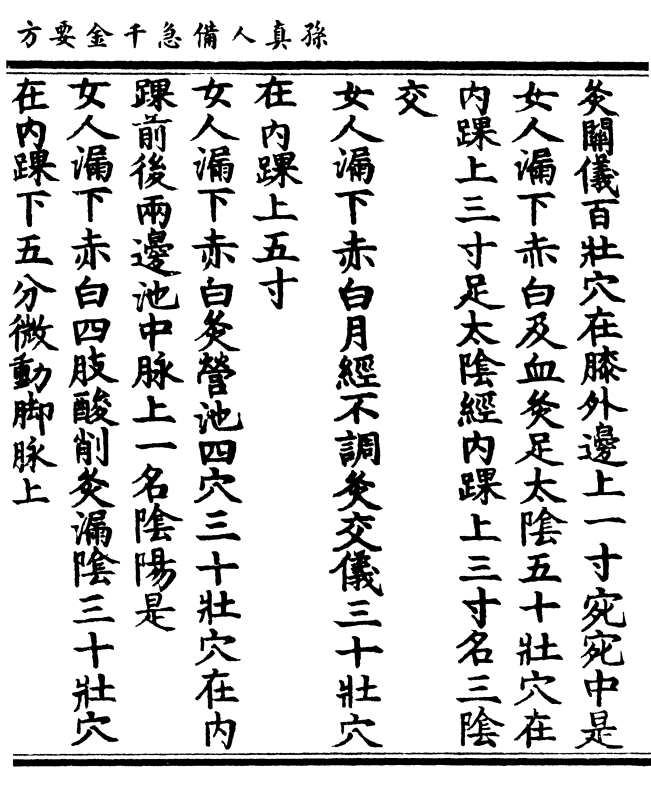 孫真人備急千金要方
灸關儀百壯穴在膝外邊上一寸宛宛中是
女人漏下赤白及血灸足太陰五十壯穴在
内踝上三寸足太陰經内踝上三寸名三陰
交
女人漏下赤白月經不調灸交儀三十壯穴
在内踝上五寸
女人漏下赤白灸營池四穴三十壯穴在内
踝前後兩邊池中脉上一名陰陽是
女人漏下赤白四肢酸削灸漏陰三十壯穴
在内踝下五分微動脚脉上